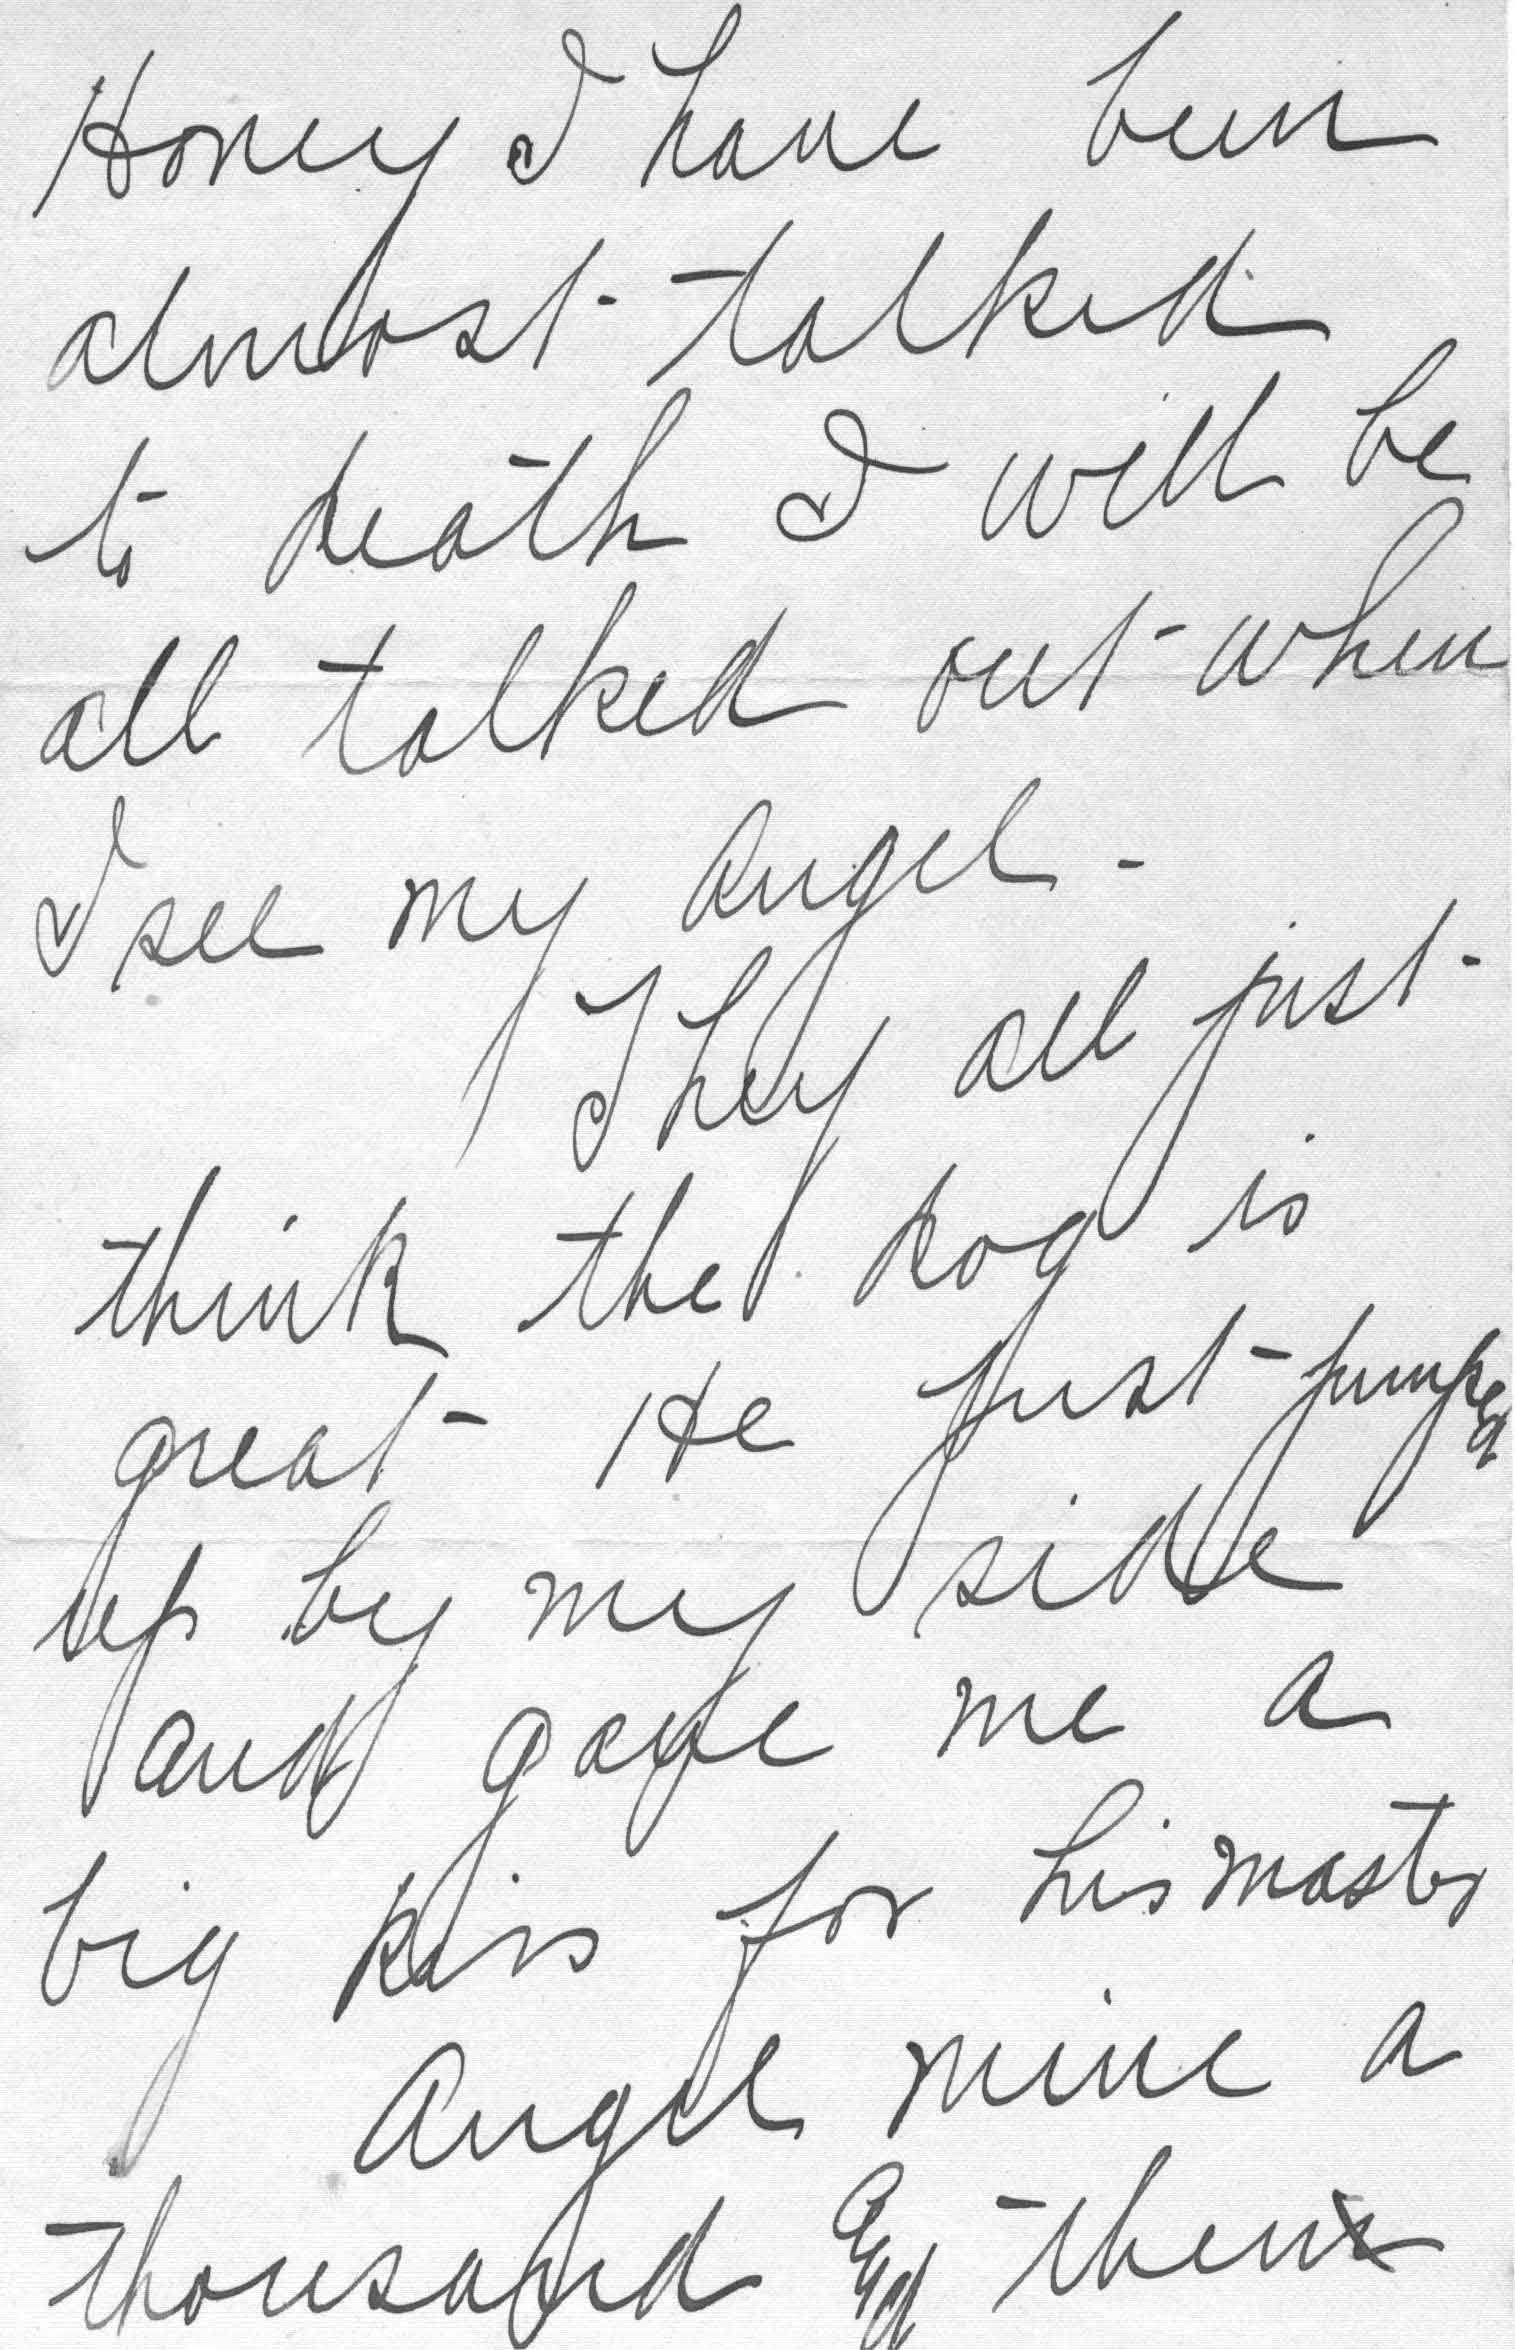 Honey I have been
almost talked
to death I will be
all talked out when
I see my Angel -
They all just
think the dog is
great He just jumped
up by my side
and gave me a
big kiss for his master
Angel mine a
thousand and then